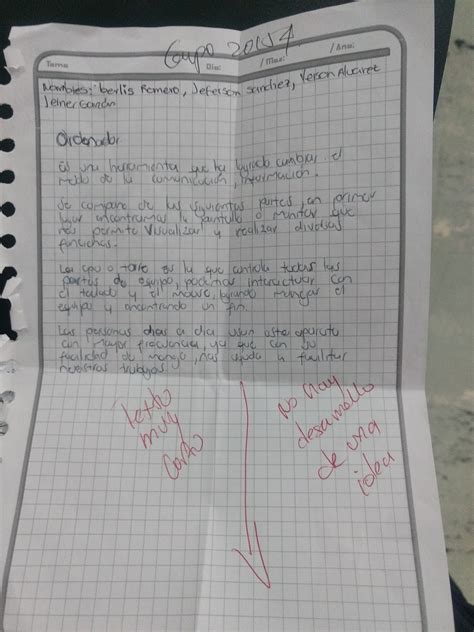 Grupo 20154
Tema Dia: / Mes: / Ano:
Nombres: berlis Romero, Jeferson Sanchez, Yeison Alvarez
Jeiner
Ordenador
Es una herramienta que ha logrado cambiar el
modo de la comunicación, información.
Se compone de las siguientes partes, en primer
lugar encontramos la pantalla o monitor que
nos permite visualizar y realizar diversas
funciones.
La cpu o torre es la que controla todas las
partes de equipo, podemos interactuar con
el teclado y el mouse, logrando manejar el
equipo y encontrando un fin.
Las personas dias a dia usan este aparato
con mayor frecuencia, ya que con su
facilidad de manejo, nos ayuda a facilitar
nuestros trabajos.
Texto
muy
corto
No hay
desarrollo
de una
idea